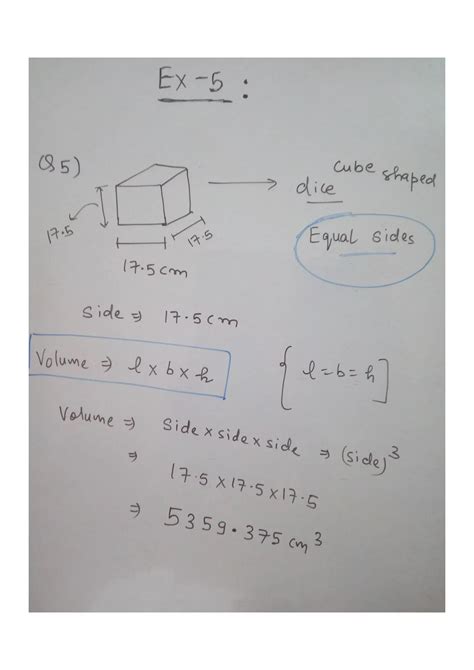 Ex-5 :
Q5)
cube shaped
dice
Equal sides
17.5
17.5
17.5 cm
Side ⇒ 17.5 cm
Volume ⇒ l × b × h
{ l = b = h ]
Volume ⇒ Side × side × side ⇒ (side)³
⇒ 17.5 × 17.5 × 17.5
⇒ 5359.375 cm³